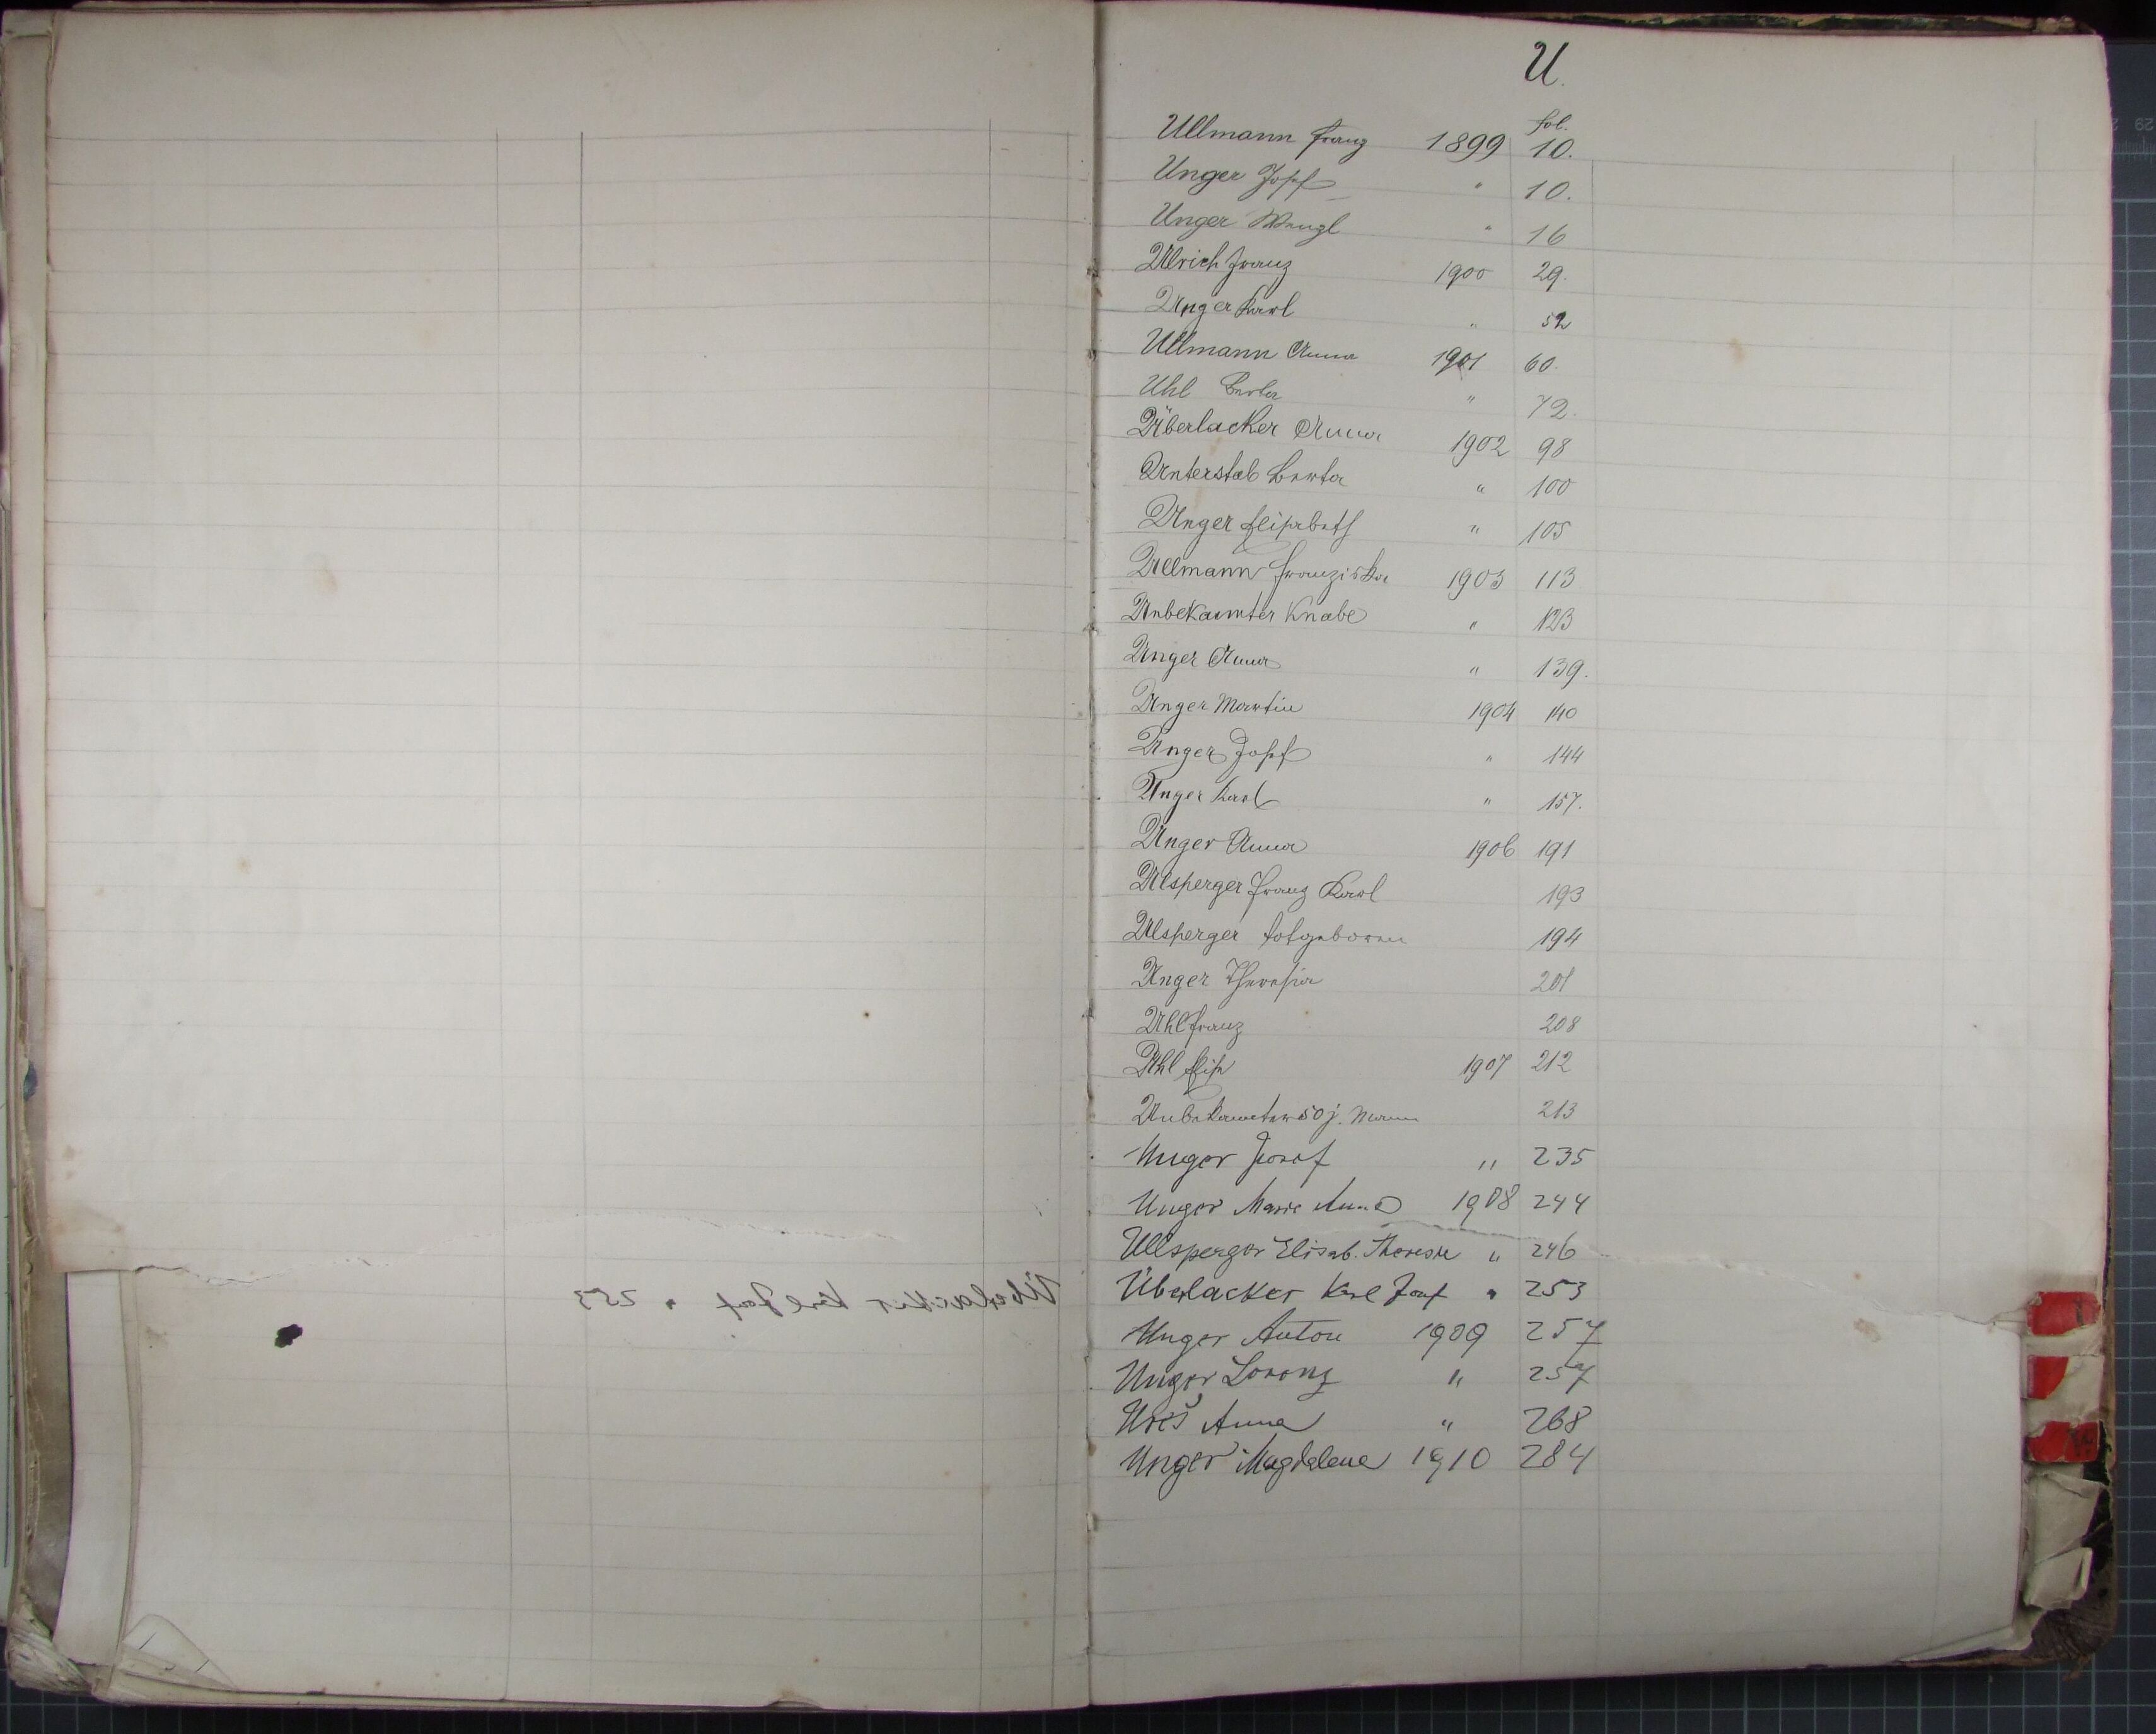 U.
fol.
Ullmann Franz 1899 10.
Unger Josef " 10.
Unger Wenzl " 16
Ulrich Franz 1900 29.
Unger Karl " 52
Ullmann Anna 1901 60.
Uhl " 72.
Überlacker Anna 1902 98
Unterstab Berta " 100
Unger Elisabeth " 105
Ullmann Franziska 1903 113
Unbekannter Knabe " 123
Unger Anna " 139.
Unger Martin 1904 140
Unger Josef " 144
Unger Karl " 157.
Unger Anna 1906 191
Ulsperger Franz Karl 193
Ulsperger totgeboren 194
Unger Theresia 201
Uhl Franz 208
Uhl Elis 1907 212
Unbekannter 50 j. Mann 213
Unger Josef " 235
Unger Marie Anna 1908 244
Ullsperger Elisab. Theresie " 246
Überlacker Karl Josef " 253
Unger Anton 1909 257
Unger Lorenz " 257
Ureš Anna " 268
Unger Magdalene 1910 284